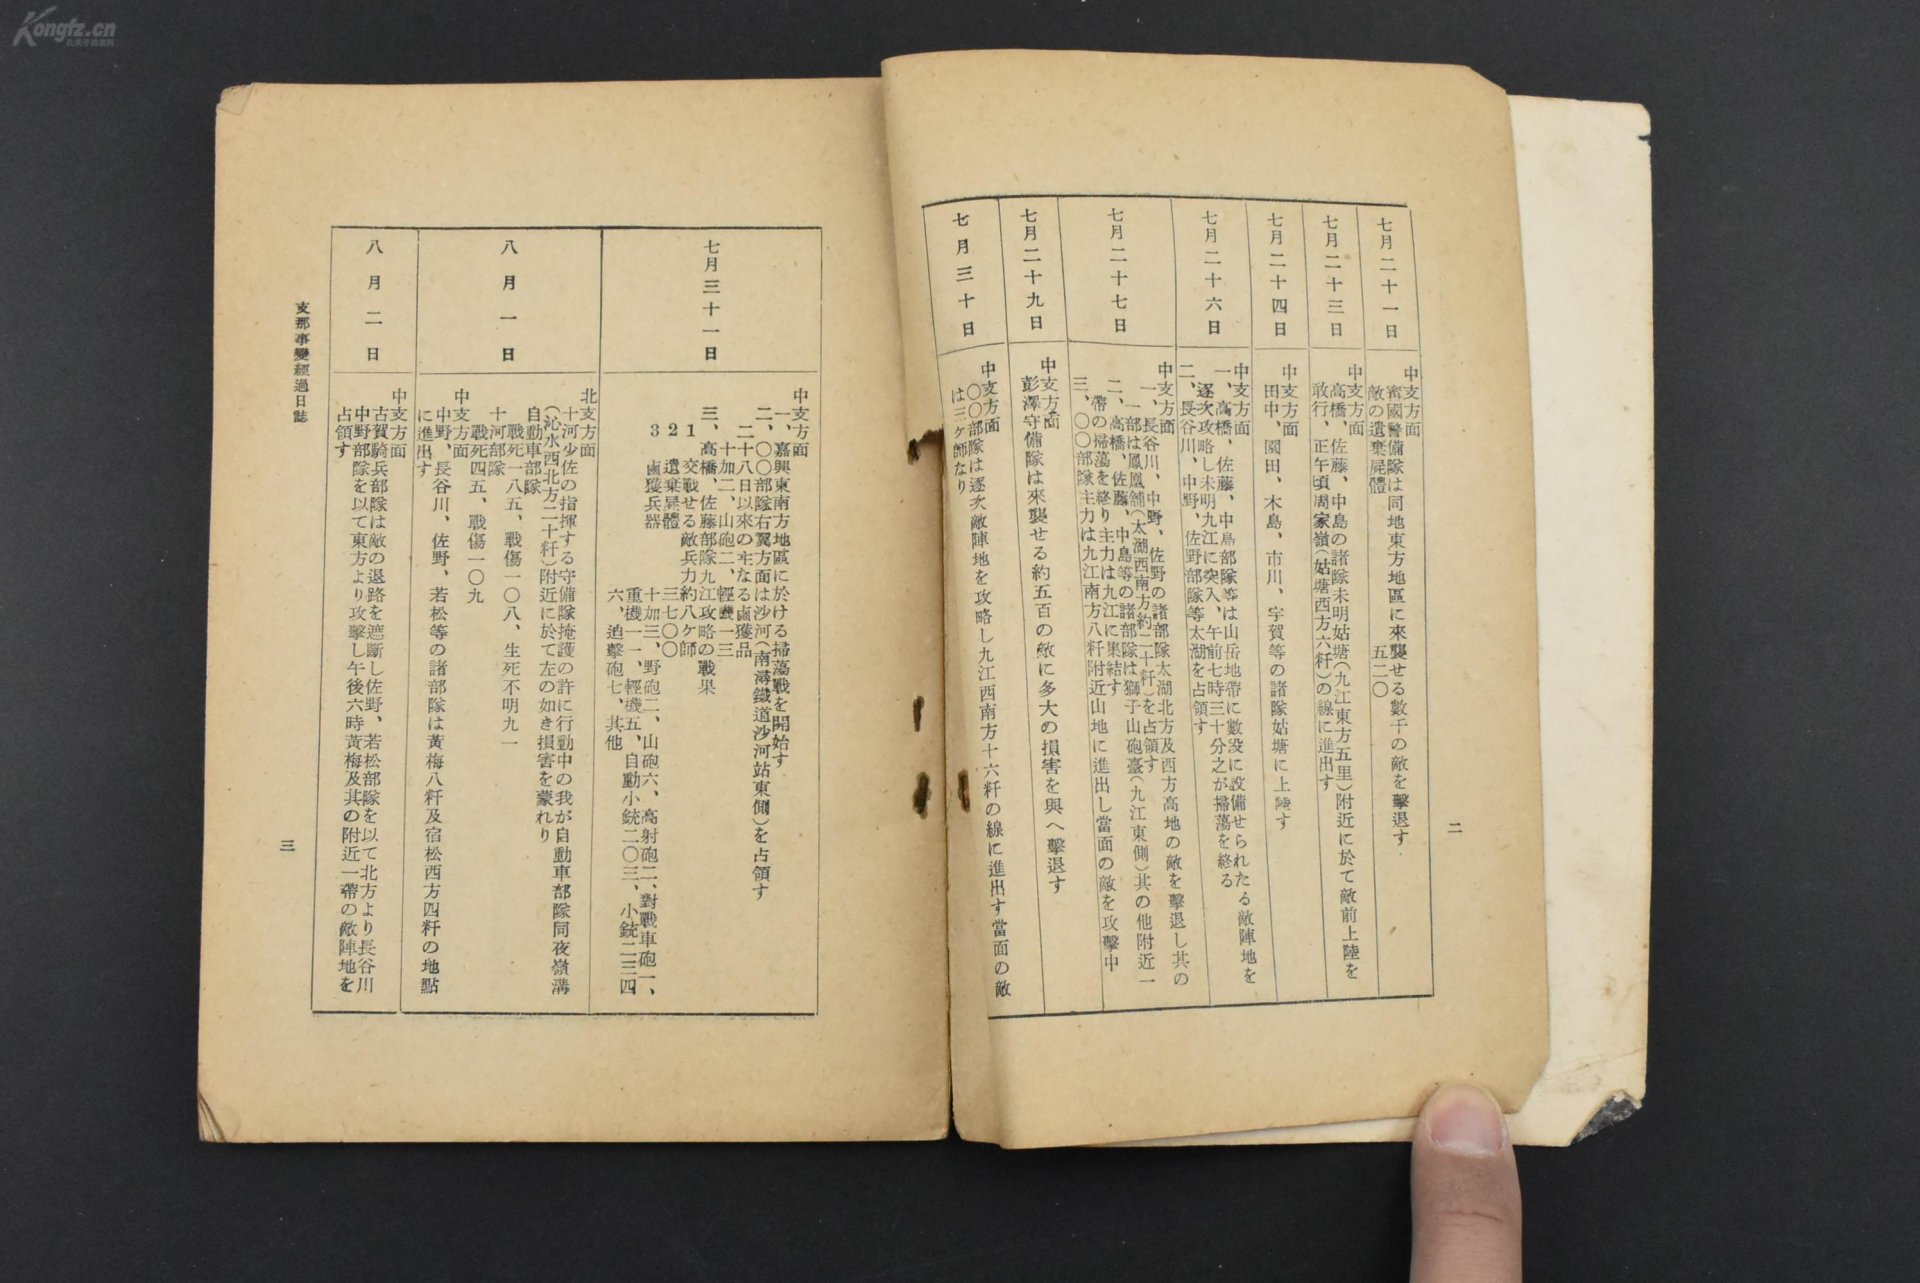 Kongfz.cn
孔夫子旧书网
二
七月二十一日
中支方面
甯國警備隊は同地東方地區に來襲せる數千の敵を擊退す
敵の遺棄屍體　五二〇
七月二十三日
中支方面
高橋、佐藤、中島の諸隊未明姑塘(九江東方五里)附近に於て敵前上陸を
敢行、正午頃周家嶺(姑塘西方六粁)の線に進出す
七月二十四日
中支方面
田中、園田、木島、市川、宇賀等の諸隊姑塘に上陸す
七月二十六日
中支方面
一、高橋、佐藤、中島部隊等は山岳地帶に數段に設備せられたる敵陣地を
逐次攻略し未明九江に突入、午前七時三十分之が掃蕩を終る
二、長谷川、中野、佐野部隊等太湖を占領す
七月二十七日
中支方面
一、長谷川、中野、佐野の諸部隊太湖北方及西方高地の敵を擊退し其の
一部は鳳凰舖(太湖西南方約二十粁)を占領す
二、高橋、佐藤、中島等の諸部隊は獅子山砲臺(九江東側)其の他附近一
帶の掃蕩を終り主力は九江に集結す
三、〇〇部隊主力は九江南方八粁附近山地に進出し當面の敵を攻擊中
七月二十九日
中支方面
彭澤守備隊は來襲せる約五百の敵に多大の損害を與へ擊退す
七月三十日
中支方面
〇〇部隊は逐次敵陣地を攻略し九江西南方十六粁の線に進出す當面の敵
は三ヶ師なり
七月三十一日
中支方面
一、嘉興東南方地區に於ける掃蕩戰を開始す
二、〇〇部隊右翼方面は沙河(南潯鐵道沙河站東側)を占領す
二十八日以來の主なる鹵獲品
十加二、山砲二、輕機一三
三、高橋、佐藤部隊九江攻略の戰果
1　交戰せる敵兵力約八ヶ師
2　遺棄屍體　三七〇〇
3　鹵獲兵器　十加三、野砲二、山砲六、高射砲二、對戰車砲一、
重機一一、輕機五、自動小銃二〇三、小銃二三四
六、迫擊砲七、其他
八月一日
北支方面
十河少佐の指揮する守備隊掩護の許に行動中の我が自動車部隊同夜嶺溝
(沁水西北方二十粁)附近に於て左の如き損害を蒙れり
自動車部隊
戰死一八五、戰傷一〇八、生死不明九一
十河部隊
戰死四五、戰傷一〇九
中支方面
中野、長谷川、佐野、若松等の諸部隊は黃梅八粁及宿松西方四粁の地點
に進出す
八月二日
中支方面
古賀騎兵部隊は敵の退路を遮斷し佐野、若松部隊を以て北方より長谷川
中野部隊を以て東方より攻擊し午後六時黃梅及其の附近一帶の敵陣地を
占領す
支那事變經過日誌
三